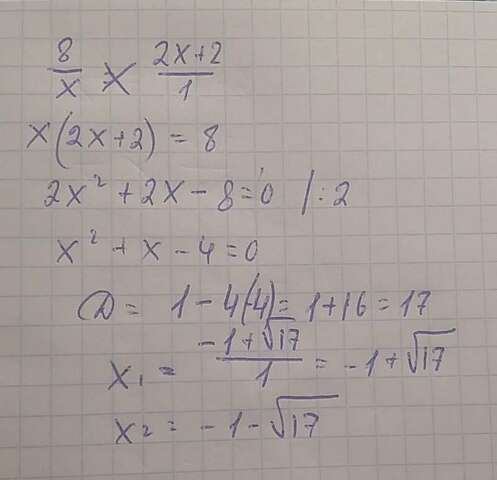 8/x = (2x+2)/1
x(2x+2) = 8
2x² + 2x - 8 = 0 /:2
x² + x - 4 = 0
D = 1 - 4(-4) = 1 + 16 = 17
x₁ = (-1+√17)/1 = -1 + √17
x₂ = -1 - √17